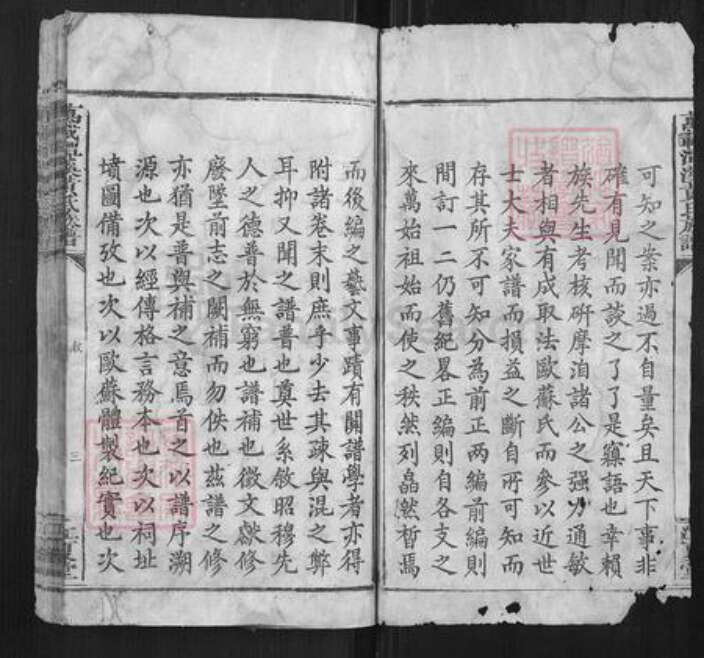 可知之案亦過不自量矣且天下事非
確有見聞而談之了了是寱語也幸賴
族先生考核硏摩洎諸公之强力通敏
者相與有成取法歐蘇氏而參以近世
士大夫家譜而損益之斷自所可知而
存其所不可知分為前正兩編前編則
間訂一二仍舊紀畧正編則自各支之
來萬始祖始而使之秩然列晶然晳焉
而後編之藝文事蹟有關譜學者亦得
附諸卷末則庶乎少去其疎與混之弊
耳抑又聞之譜普也奠世系敘昭穆先
人之德普於無窮也譜補也徵文獻修
廢墜前志之闕補而勿佚也茲譜之修
亦猶是普與補之意焉首之以譜序溯
源也次以經傳格言務本也次以祠址
墳圖備攷也次以歐蘇體製紀實也次
敘
三